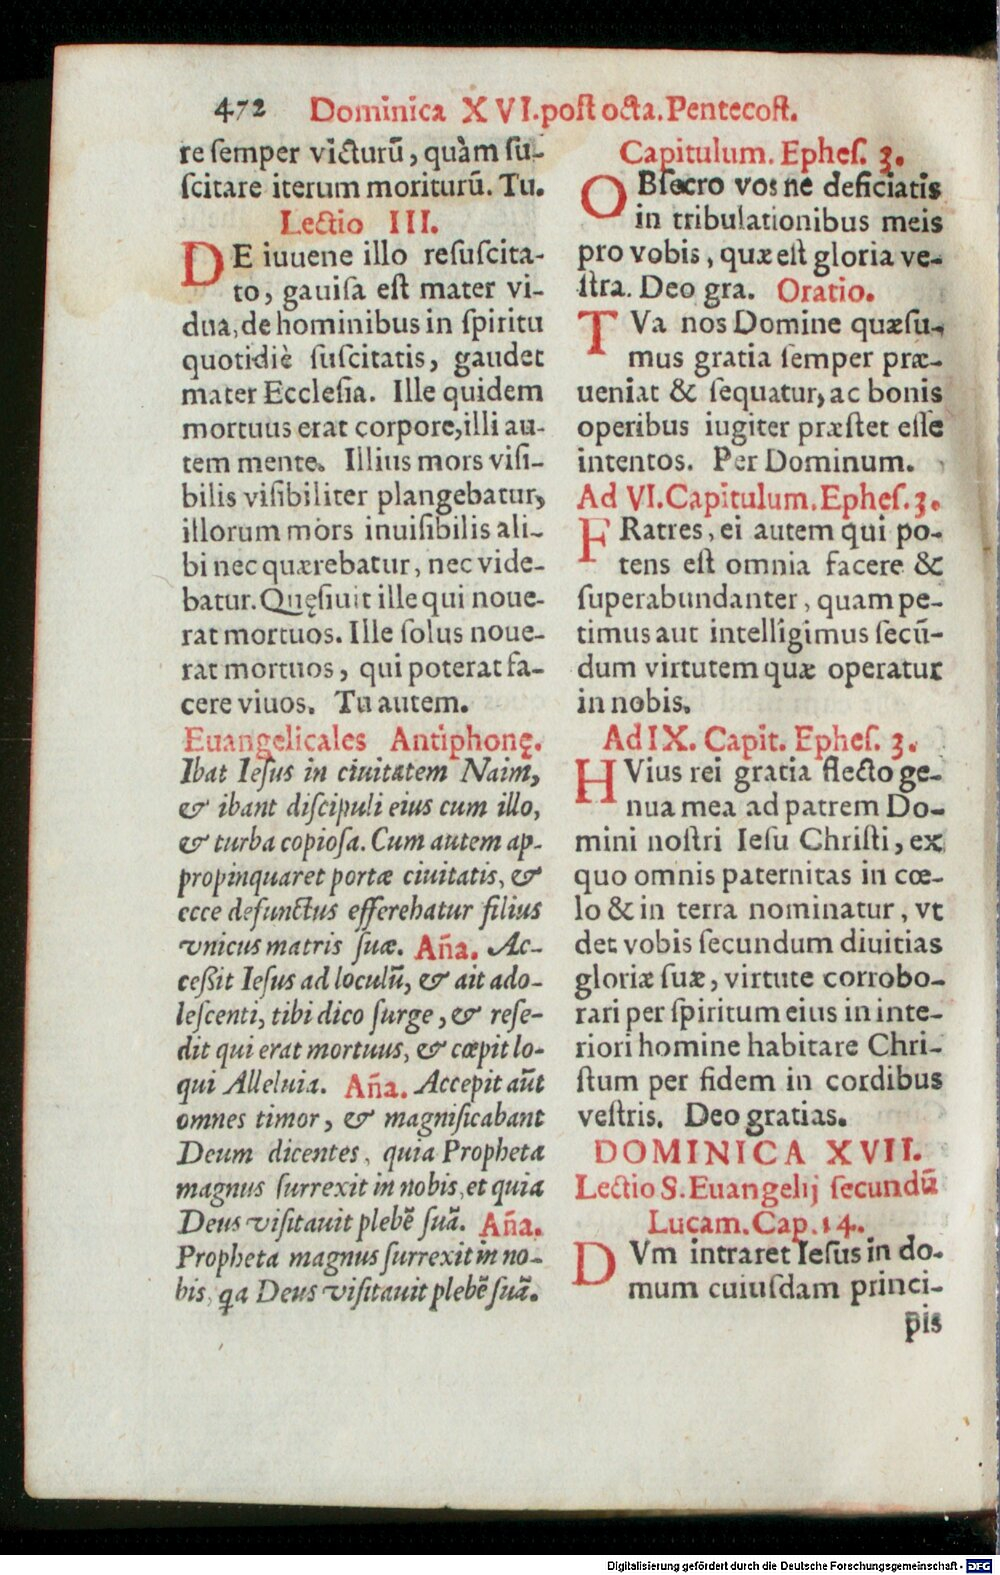 472 Dominica XVI. post octa. Pentecost.
re semper victurū, quàm su-
scitare iterum moriturū. Tu.
Lectio III.
DE iuuene illo resuscita-
to, gauisa est mater vi-
dua, de hominibus in spiritu
quotidiè suscitatis, gaudet
mater Ecclesia. Ille quidem
mortuus erat corpore, illi au-
tem mente. Illius mors visi-
bilis visibiliter plangebatur,
illorum mors inuisibilis ali-
bi nec quærebatur, nec vide-
batur. Quęsiuit ille qui noue-
rat mortuos. Ille solus noue-
rat mortuos, qui poterat fa-
cere viuos. Tu autem.
Euangelicales Antiphonę.
Ibat Iesus in ciuitatem Naim,
& ibant discipuli eius cum illo,
& turba copiosa. Cum autem ap-
propinquaret portæ ciuitatis, &
ecce defunctus efferebatur filius
vnicus matris suæ. Aña. Ac-
ceßit Iesus ad loculū, & ait ado-
lescenti, tibi dico surge, & rese-
dit qui erat mortuus, & cœpit lo-
qui Alleluia. Aña. Accepit aūt
omnes timor, & magnificabant
Deum dicentes, quia Propheta
magnus surrexit in nobis, et quia
Deus visitauit plebē suā. Aña.
Propheta magnus surrexit in no-
bis, qa Deus visitauit plebē suā.
Capitulum. Ephes. 3.
OBsecro vos ne deficiatis
in tribulationibus meis
pro vobis, quæ est gloria ve-
stra. Deo gra. Oratio.
TVa nos Domine quæsu-
mus gratia semper præ-
ueniat & sequatur, ac bonis
operibus iugiter præstet esse
intentos. Per Dominum.
Ad VI. Capitulum. Ephes. 3.
FRatres, ei autem qui po-
tens est omnia facere &
superabundanter, quam pe-
timus aut intelligimus secū-
dum virtutem quæ operatur
in nobis.
Ad IX. Capit. Ephes. 3.
HVius rei gratia flecto ge-
nua mea ad patrem Do-
mini nostri Iesu Christi, ex
quo omnis paternitas in cœ-
lo & in terra nominatur, vt
det vobis secundum diuitias
gloriæ suæ, virtute corrobo-
rari per spiritum eius in inte-
riori homine habitare Chri-
stum per fidem in cordibus
vestris. Deo gratias.
DOMINICA XVII.
Lectio S. Euangelij secundū
Lucam. Cap. 14.
DVm intraret Iesus in do-
mum cuiusdam princi-
pis
Digitalisierung gefördert durch die Deutsche Forschungsgemeinschaft - DFG